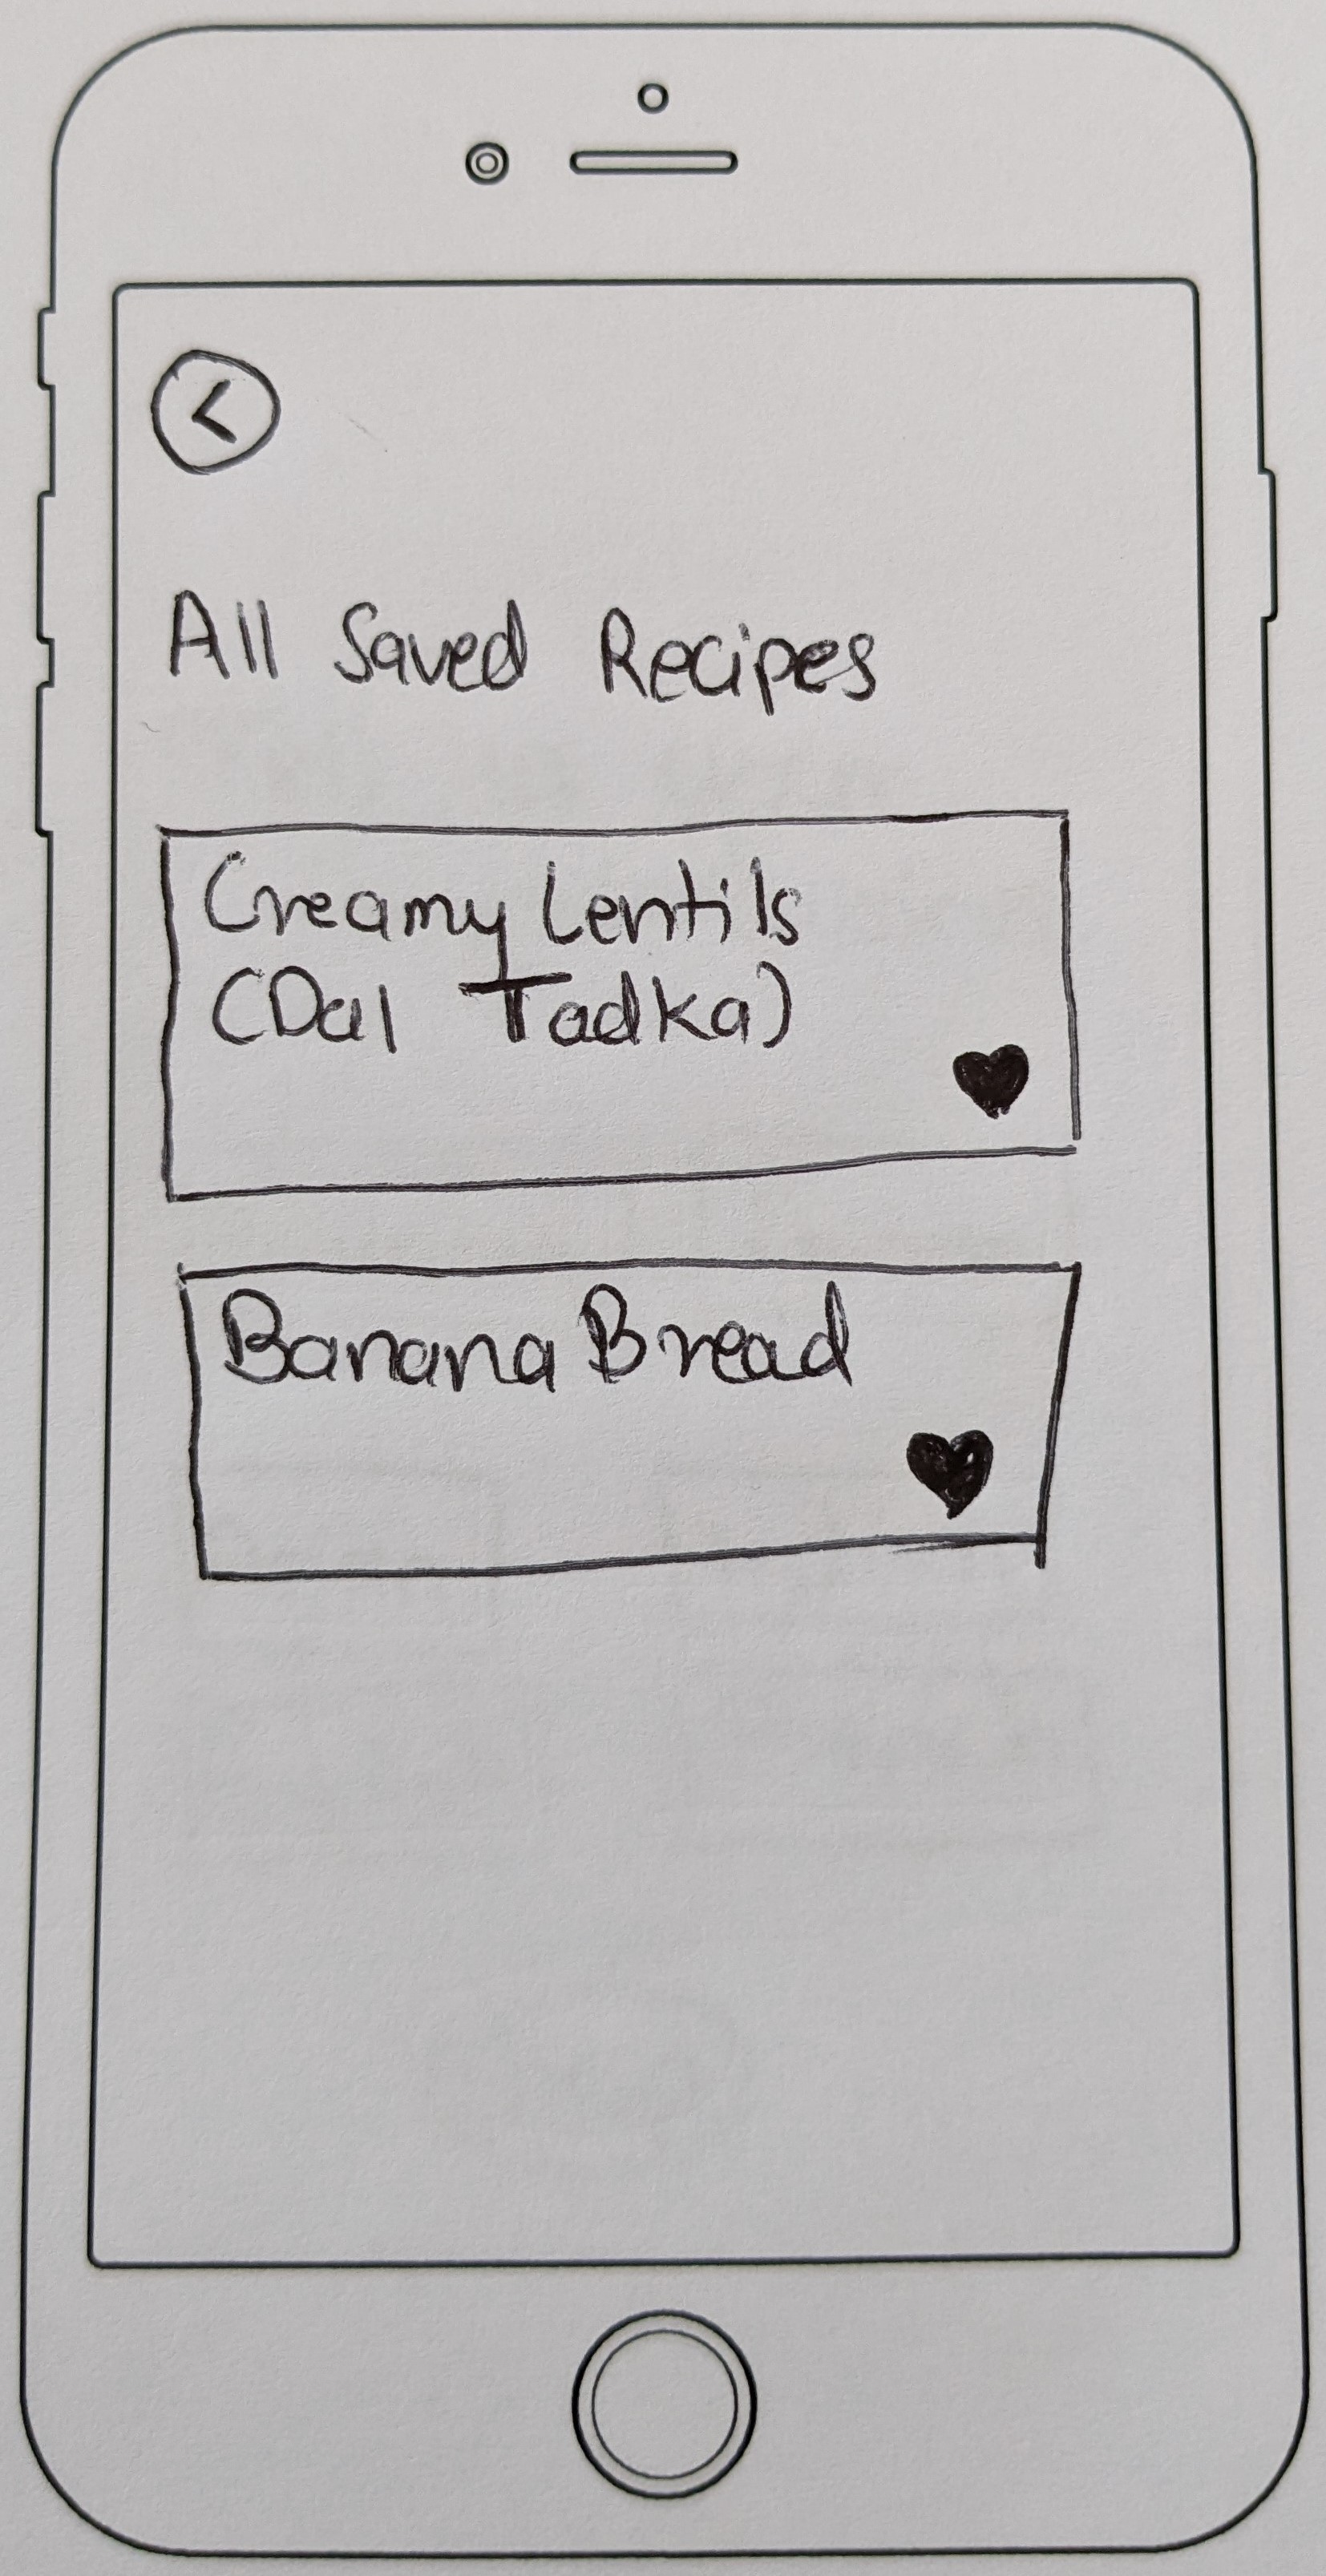 All Saved Recipes
Creamy Lentils
(Dal Tadka)
Banana Bread